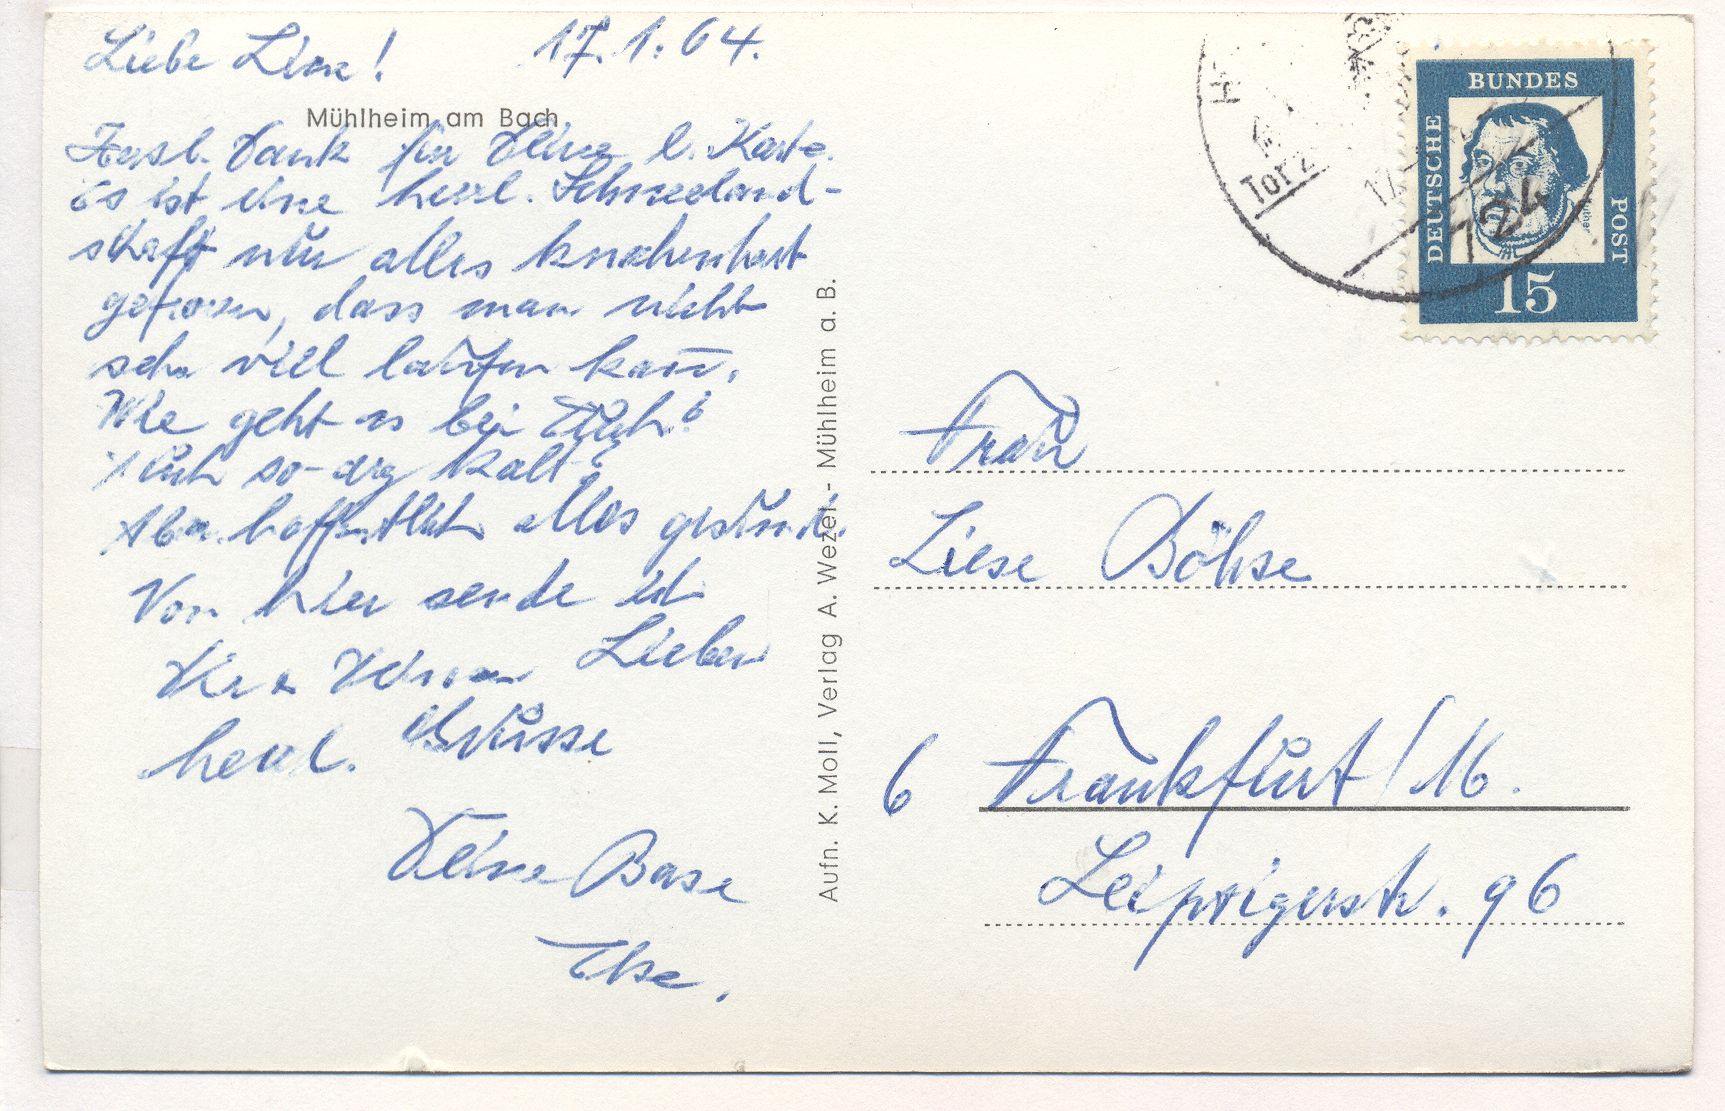 Liebe Liese! 17.1.64.
Mühlheim am Bach
Herzl. Dank für Deine l. Karte.
Es ist eine herrl. Schneeland-
schaft nur alles knochenhart
gefroren, dass man nicht
sehr viel laufen kann.
Wie geht es bei Euch?
Auch so arg kalt?
Aber hoffentlich alles gesund.
Von hier sende ich
Dir Lieben
herzl. Grüsse
Deine Base
Ilse.
Aufn. K. Moll, Verlag A. Wezel - Mühlheim a. B.
DEUTSCHE
BUNDES
POST
Luther
15
Torz
17.
124
Frau
Liese Böhse
6 Frankfurt/M.
Leipzigerstr. 96